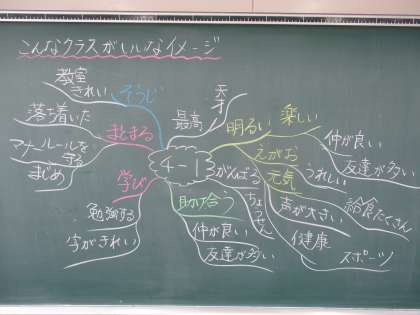 こんなクラスがいいなイメージ
教室
きれい
そうじ
落ち着いた
まとまる
マナールールを
守る
まじめ
学び
勉強する
字がきれい
4-1
最高
天才
明るい
楽しい
えがお
うれしい
仲が良い
友達が多い
元気
声が大きい
給食たくさん
健康
スポーツ
がんばる
ちょうせん
助け合う
仲が良い
友達が多い